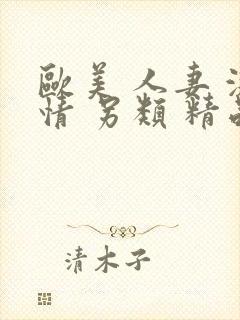 歐美人妻
情另類精
清木子